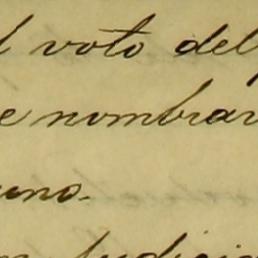 l voto del
e nombrar
uno.
Judicia